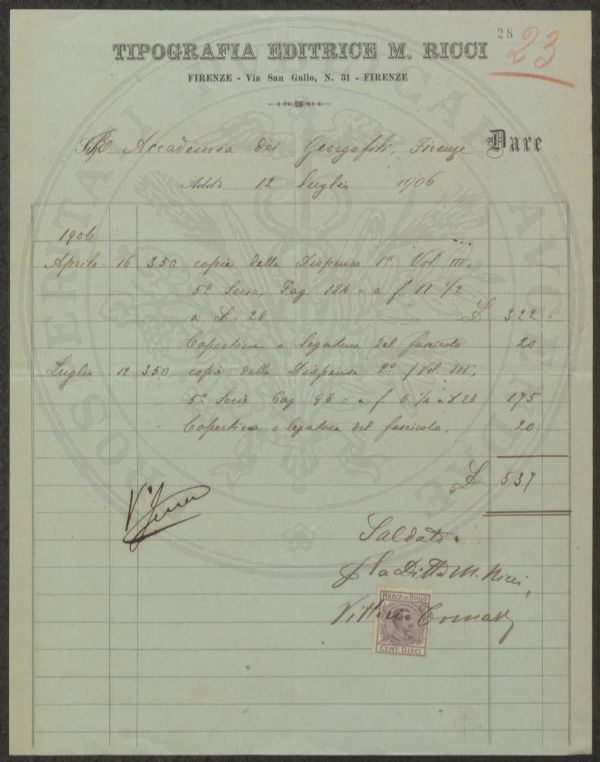 28
23
TIPOGRAFIA EDITRICE M. RICCI
FIRENZE - Via San Gallo, N. 31 - FIRENZE
Accademia dei Georgofili, Firenze Dare
Addì 12 Luglio 1906
1906
Aprile 16 350 copie della Dispensa 1ª Vol. III,
5ª Serie, Pag 184 = a f 11 1/2
a L. 28 £ 322 =
Copertina e legatura del fascicolo 20
Luglio 12 350 copie della Dispensa 2ª Vol. III,
5ª Serie Pag 96 = a f 6 1/4 a £ 28 175
Copertina e legatura del fascicolo. 20
£ 537
Saldato.
p la Ditta M. Ricci,
MARCA DA BOLLO
CENT. DIECI